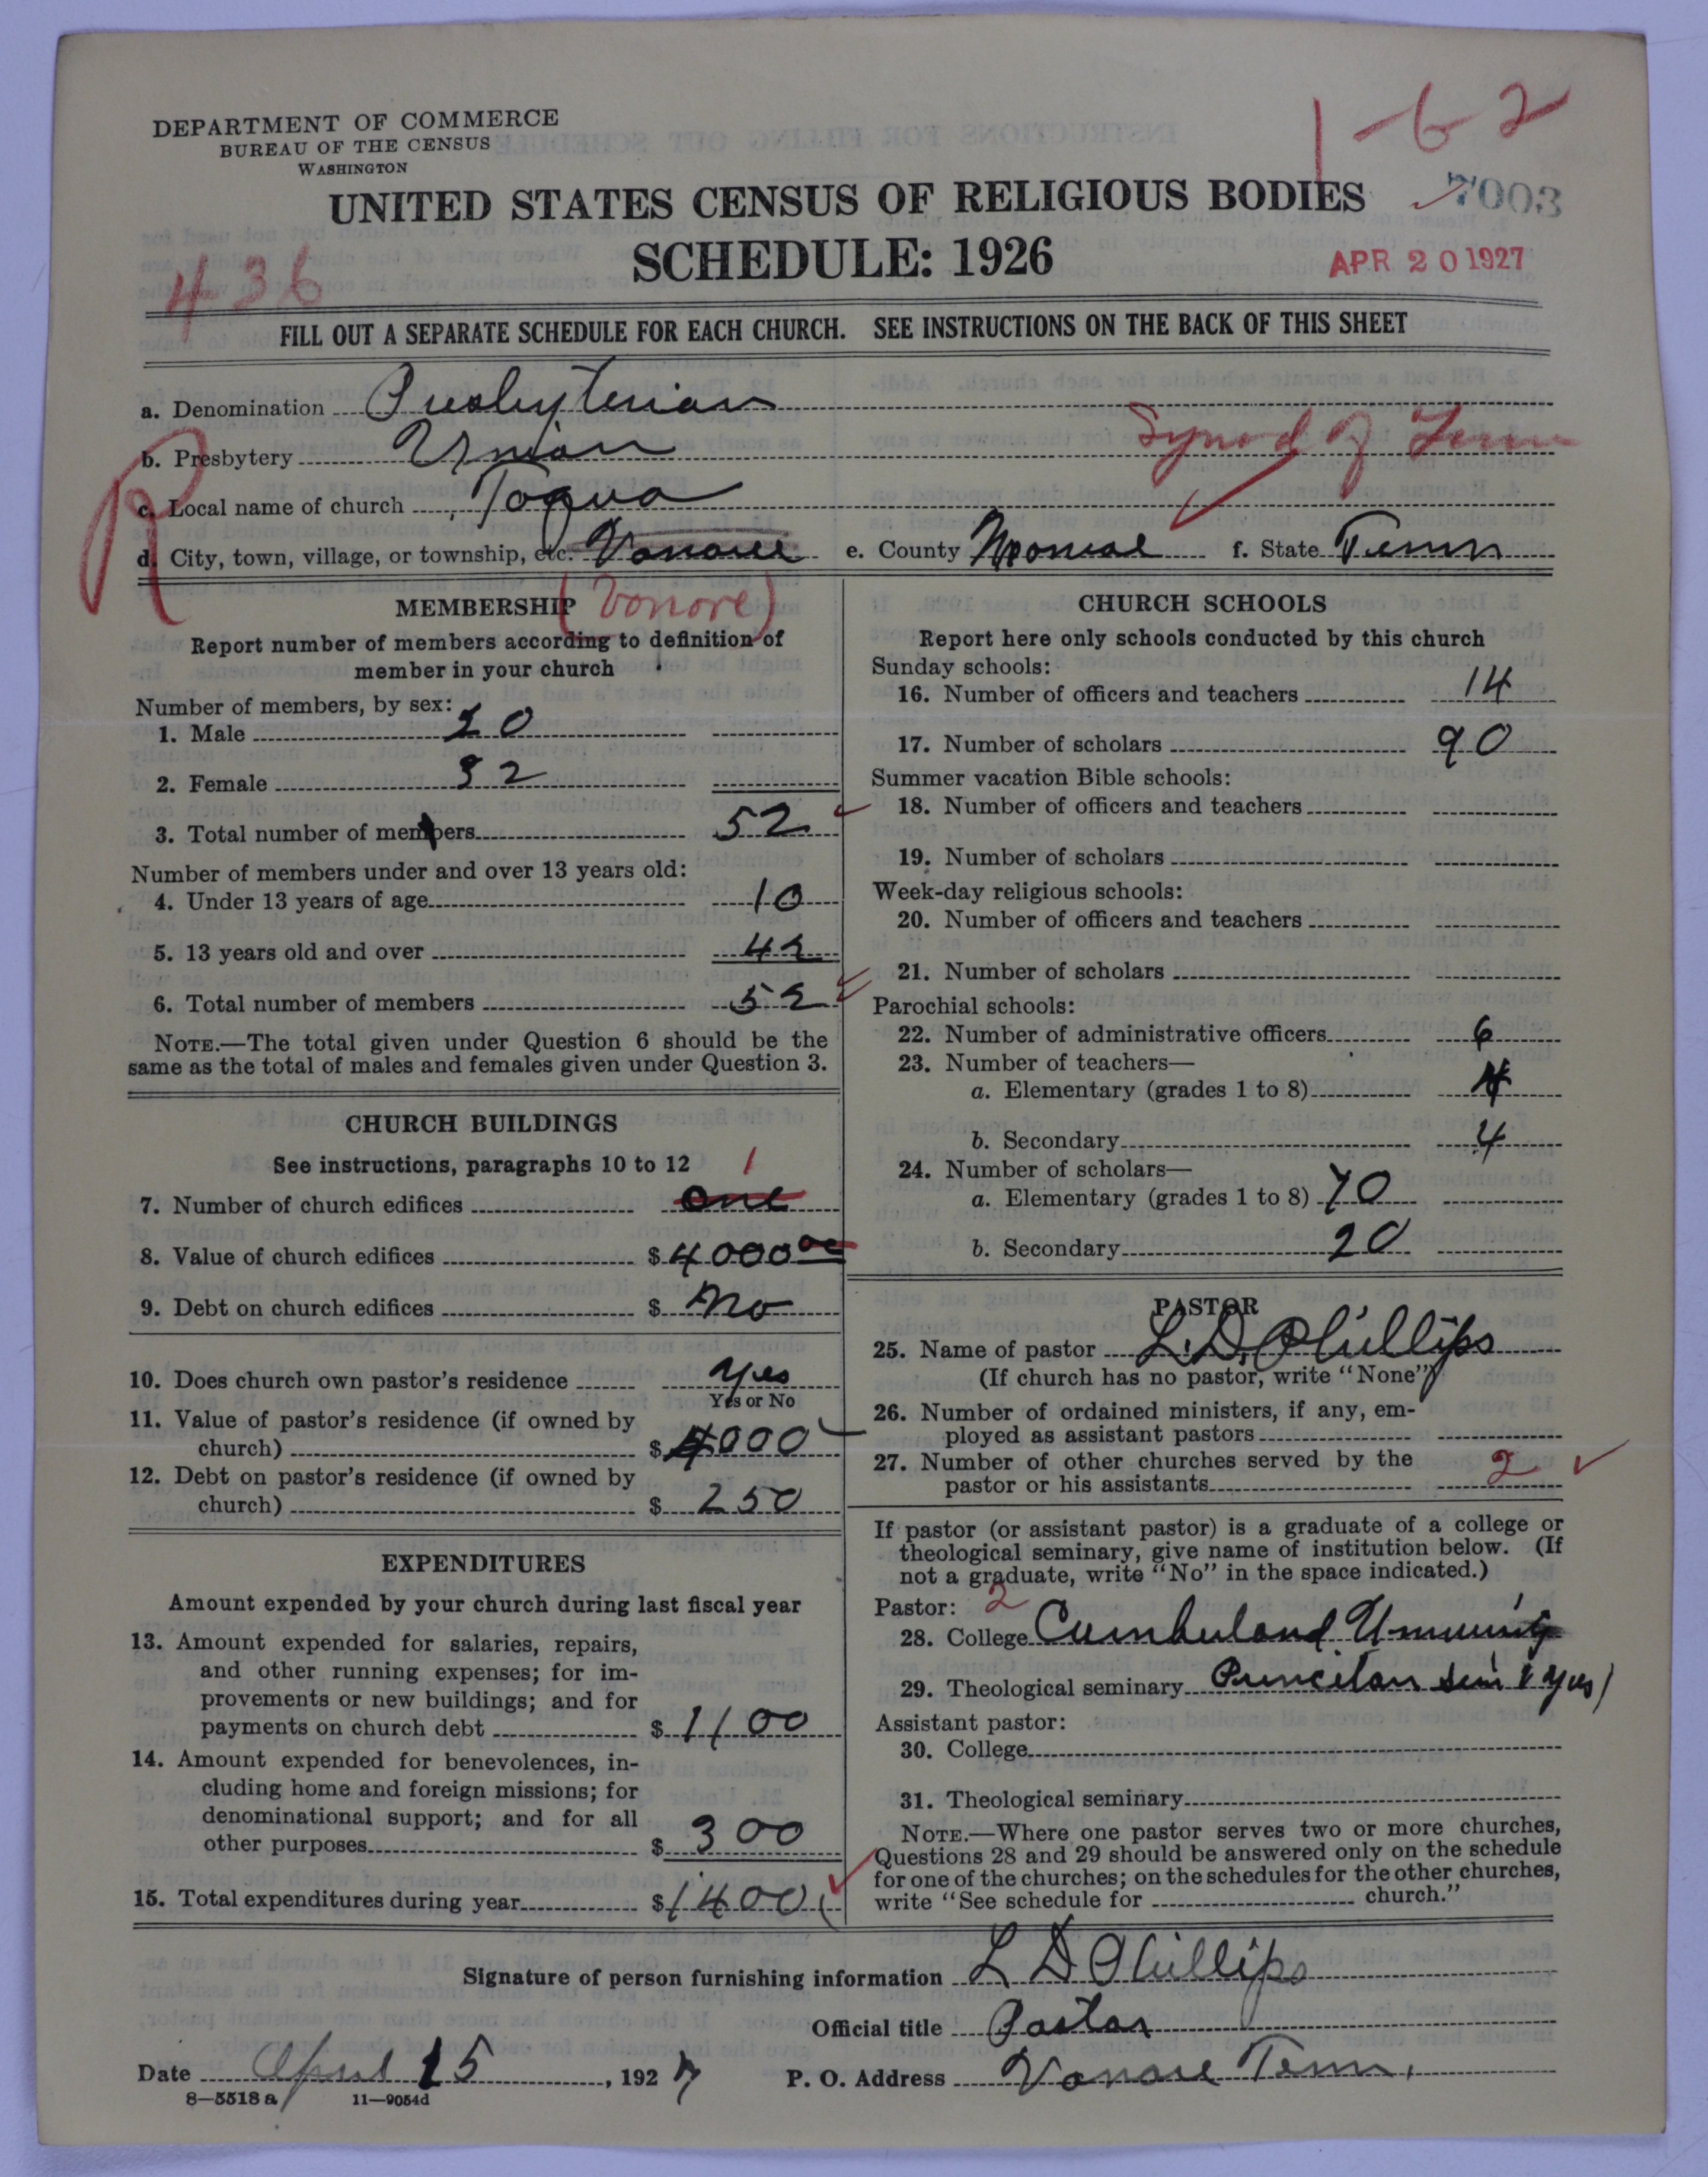 DEPARTMENT OF COMMERCE
BUREAU OF THE CENSUS
WASHINGTON
1-6-2
UNITED STATES CENSUS OF RELIGIOUS BODIES
7003
SCHEDULE: 1926
APR 20 1927
436
FILL OUT A SEPARATE SCHEDULE FOR EACH CHURCH. SEE INSTRUCTIONS ON THE BACK OF THIS SHEET
a. Denomination Presbyterian
b. Presbytery Union
Synod of Tenn
R
c. Local name of church Toqua
d. City, town, village, or township, etc. Vonore e. County Monroe f. State Tenn
MEMBERSHIP (Vonore)
Report number of members according to definition of
member in your church
Number of members, by sex:
1. Male 20
2. Female 32
3. Total number of members 52
Number of members under and over 13 years old:
4. Under 13 years of age 10
5. 13 years old and over 42
6. Total number of members 52
NOTE.—The total given under Question 6 should be the
same as the total of males and females given under Question 3.
CHURCH BUILDINGS
See instructions, paragraphs 10 to 12 1
7. Number of church edifices one
8. Value of church edifices $ 4000 00
9. Debt on church edifices $ no
10. Does church own pastor's residence yes
Yes or No
11. Value of pastor's residence (if owned by
church) $ 4000
12. Debt on pastor's residence (if owned by
church) $ 250
EXPENDITURES
Amount expended by your church during last fiscal year
13. Amount expended for salaries, repairs,
and other running expenses; for im-
provements or new buildings; and for
payments on church debt $ 1100
14. Amount expended for benevolences, in-
cluding home and foreign missions; for
denominational support; and for all
other purposes $ 300
15. Total expenditures during year $ 1400
CHURCH SCHOOLS
Report here only schools conducted by this church
Sunday schools:
16. Number of officers and teachers 14
17. Number of scholars 90
Summer vacation Bible schools:
18. Number of officers and teachers
19. Number of scholars
Week-day religious schools:
20. Number of officers and teachers
21. Number of scholars
Parochial schools:
22. Number of administrative officers 6
23. Number of teachers—
a. Elementary (grades 1 to 8) 4
b. Secondary 4
24. Number of scholars—
a. Elementary (grades 1 to 8) 70
b. Secondary 20
PASTOR
25. Name of pastor L. D. Phillips
(If church has no pastor, write "None")
26. Number of ordained ministers, if any, em-
ployed as assistant pastors
27. Number of other churches served by the
pastor or his assistants 2
If pastor (or assistant pastor) is a graduate of a college or
theological seminary, give name of institution below. (If
not a graduate, write "No" in the space indicated.)
Pastor: 2
28. College Cumberland University
29. Theological seminary Princeton Sem (yes)
Assistant pastor:
30. College
31. Theological seminary
NOTE.—Where one pastor serves two or more churches,
Questions 28 and 29 should be answered only on the schedule
for one of the churches; on the schedules for the other churches,
write "See schedule for church."
Signature of person furnishing information L D Phillips
Official title Pastor
Date April 15, 1927 P. O. Address Vonore Tenn.
8—5518 a 11—9054d